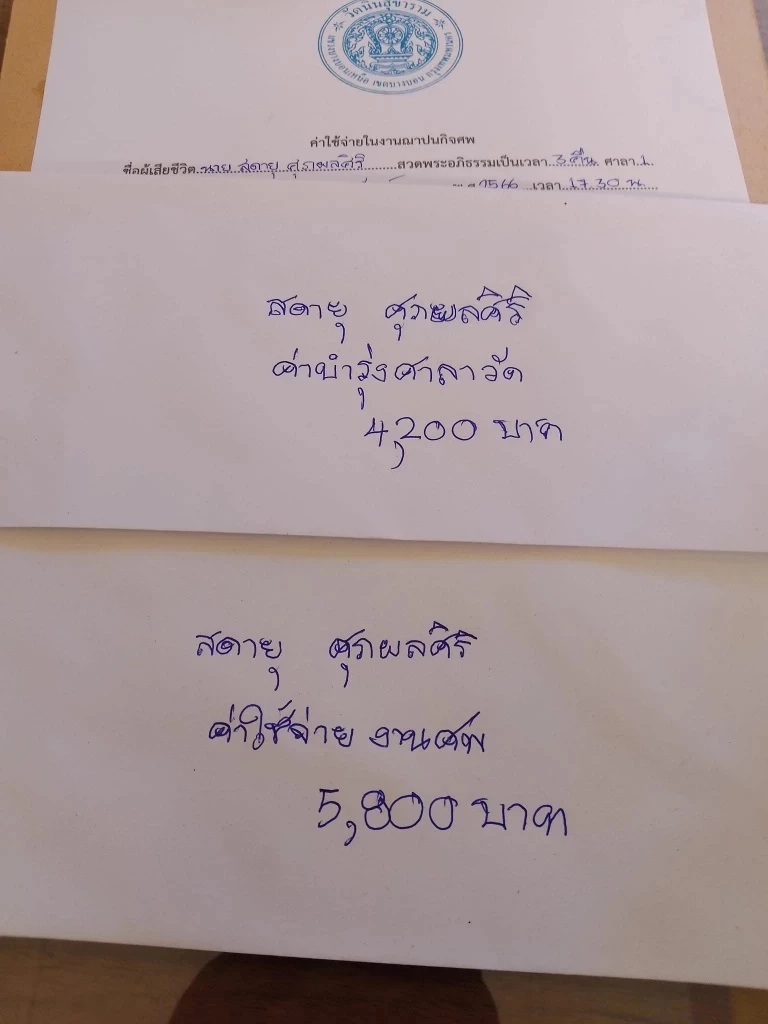 วัดนินสุขาราม
แขวงบางบอนเหนือ เขตบางบอน กรุงเทพมหานคร
ค่าใช้จ่ายในงานฌาปนกิจศพ
ชื่อผู้เสียชีวิต นาย สดายุ ศุภผลศิริ สวดพระอภิธรรมเป็นเวลา 3 คืน ศาลา 1
2566 เวลา 17.30 น.
สดายุ ศุภผลศิริ
ค่าบำรุ่งศาลาวัด
4,200 บาท
สดายุ ศุภผลศิริ
ค่าใช้จ่าย งานศพ
5,800 บาท